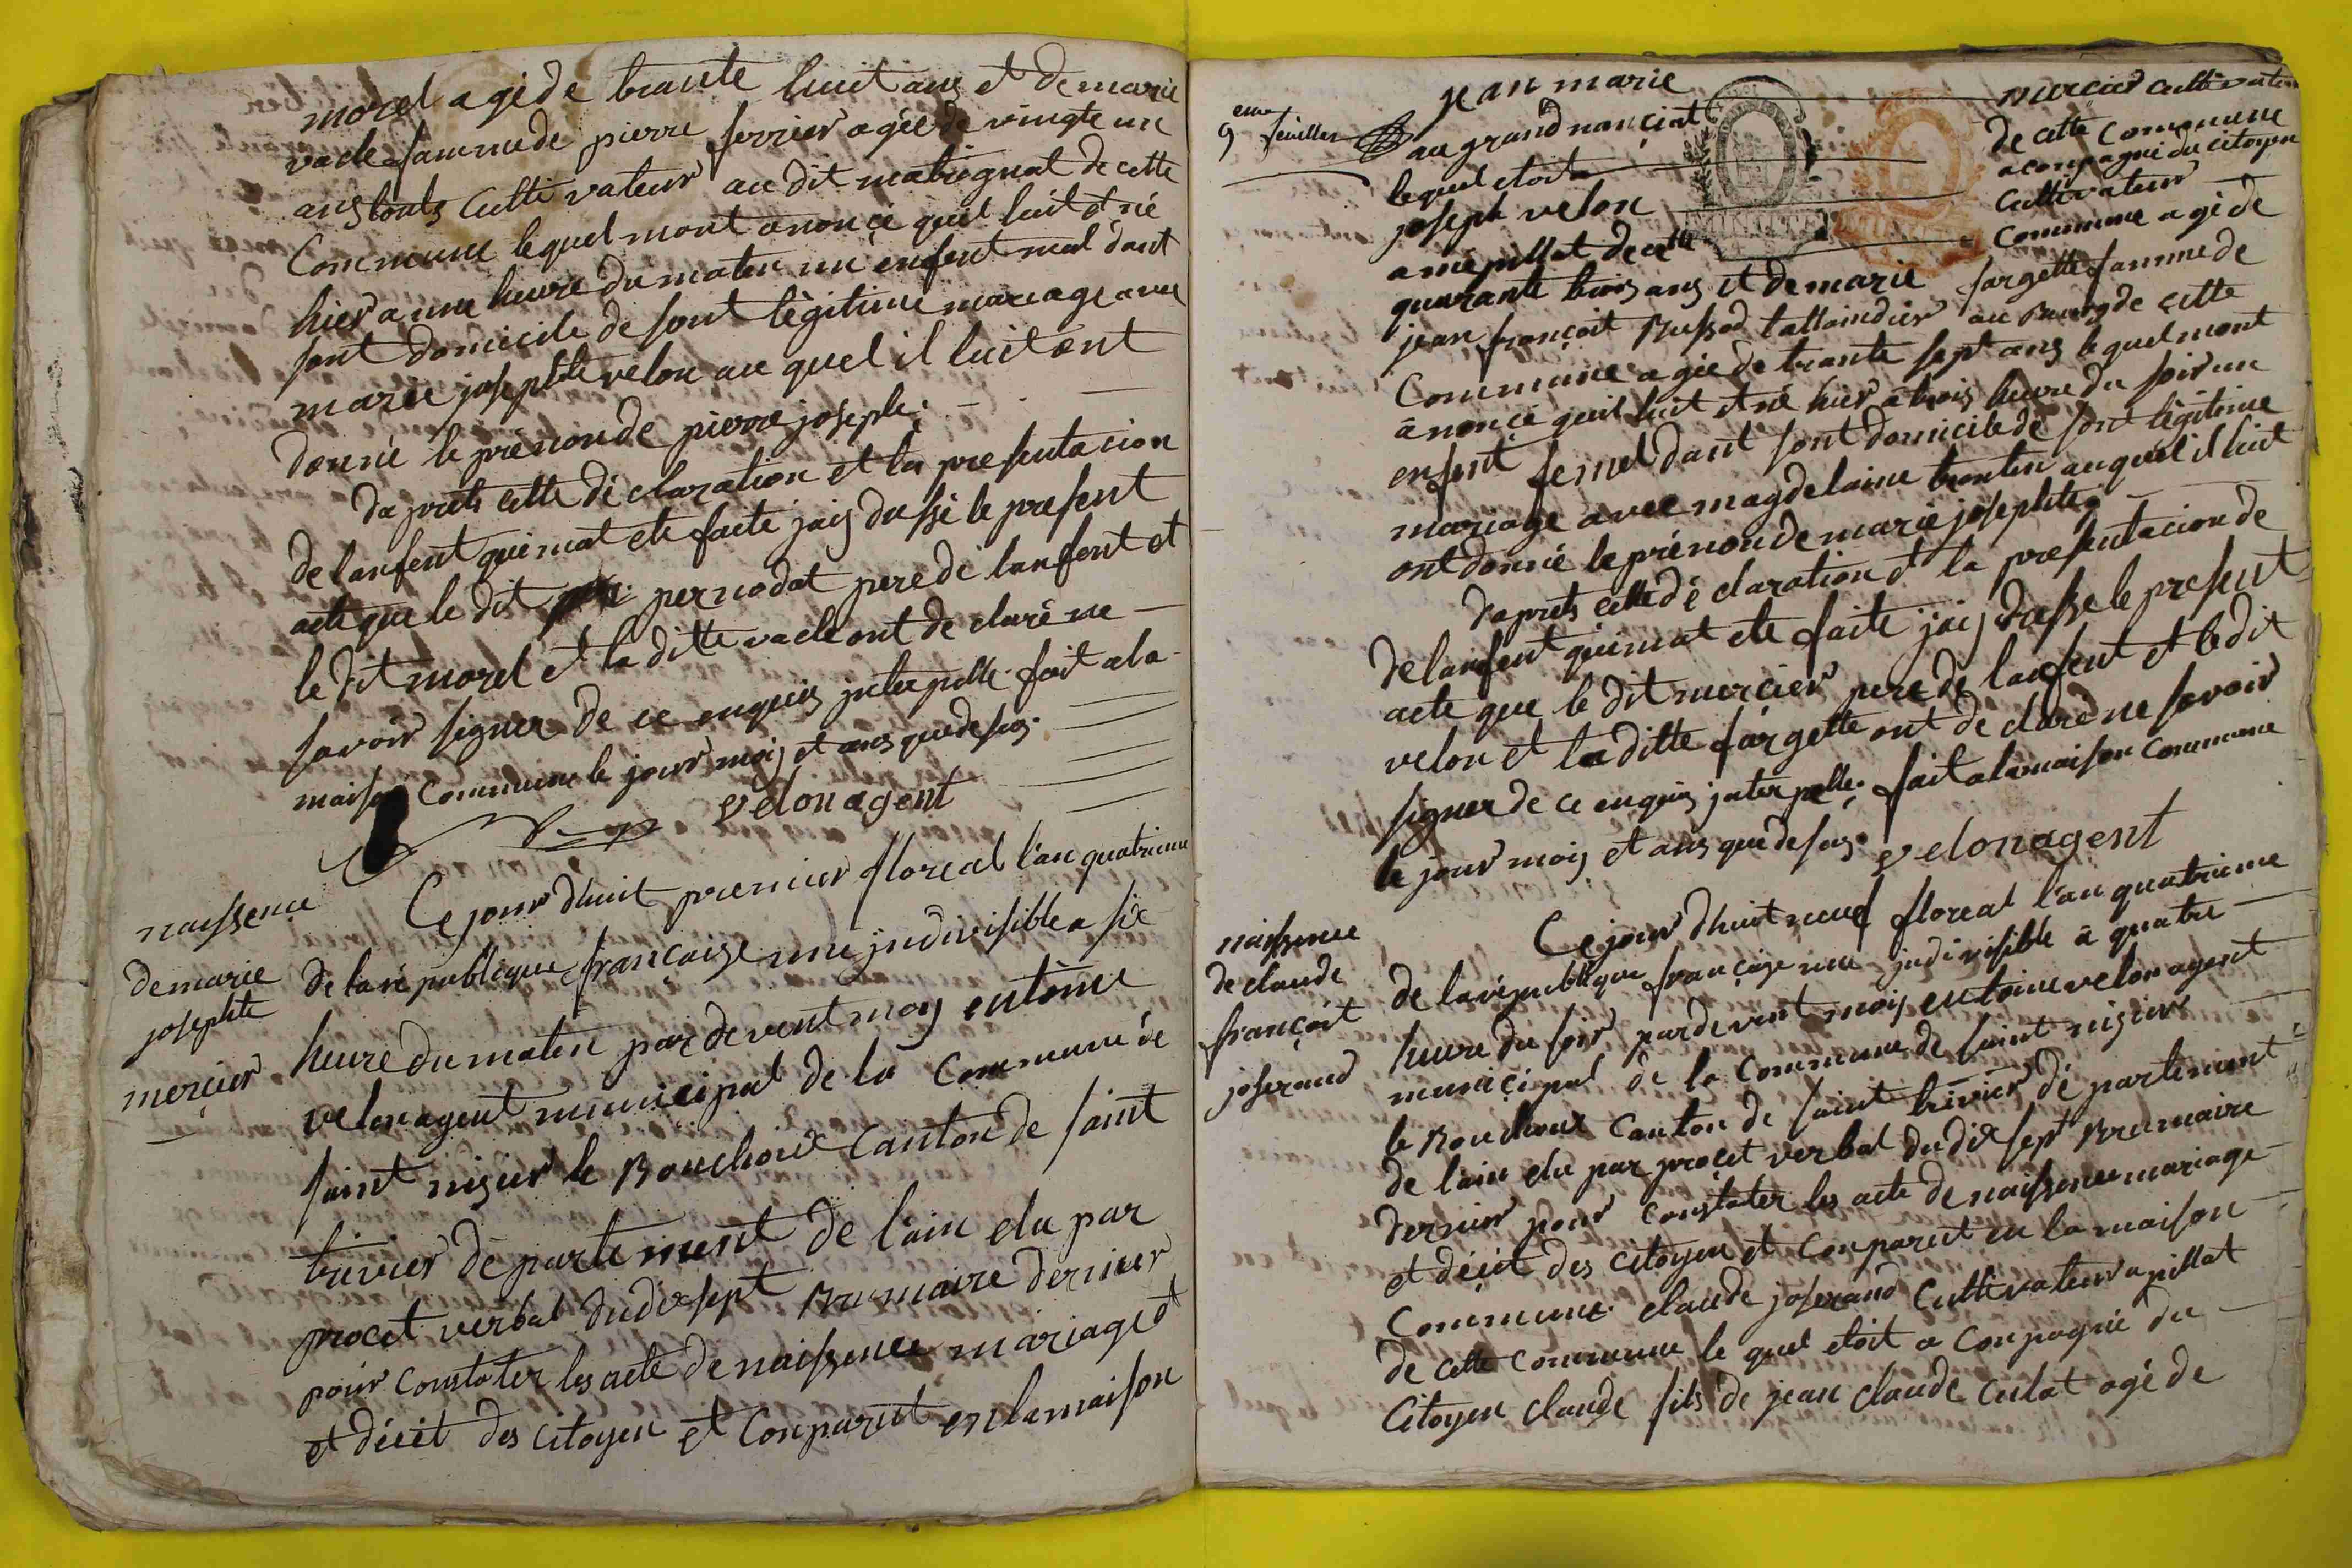 morel agé de trante huit ans et de marie
vacle famme de pierre ferrier agée de vingte un
ans touts cultivateur au dit matrignat de cette
Commune lequel mont anoncé quil luit et né
hier a une heure du maten un enfent mal dant
sont domicile de sont légitime mariage avec
marie josephte velon au quel il luit ont
donné le prénon de pierre joseph.
daprets cette déclaration et la presentacion
de lanfent qui mat ete faite jaij dussé le present
acte que le dit pernodat pere dé lanfent et
le dit morel et la ditte vacle ont de claré ne
savoir signer de ce enquis jnterpellé. fait a la
maison Commune le jour mois et ans que desus.
velon agent
naissence
de marie
josephte
mercier
Ce jour dhuit premier floreal l'an quatrieme
de la république française une jndivisible a six
heure du maten par devent moy entoine
velon agent municipal de la Commune de
saint nizier le Bouchoux Canton de saint
trivier dé partement de l'ain elu par
procet verbal du dix sept Brumaire dernier
pour constater les acte de naissence mariage et
et décet des citoyen et Conparut en la maison
9 eme feuillet
jean marie mercier cultivateur
au grand nançiat de cette Commune
lequel etoit acompagné du citoyen
joseph velon cultivateur
a mépillat de cette Commune agé de
quarante trois ans et de marie fargette famme de
jean françoit Bussod tallaindier au Bourg de cette
Commune agée de trante sept ans lequel mont
anoncé quil luit et né hier a trois heure du soir un
enfent femel dant sont domicile de sont légitime
mariage avec magdelaine trontin au quel il luit
ont donné le prénon de marie josephte
daprets cette dé claration et la presentacion de
de lanfent qui mat ete faite jaij dussé le present
acte que le dit mercier pere de lanfent et le dit
velon et la ditte fargette ont de claré ne savoir
signer de ce enquis jnterpellé. fait a la maison Commune
le jour mois et ans que desus. velon agent
naissence
de claude
françoit
joserand
Ce jour dhuit neuf floreal l'an quatrieme
de la république françaize une jndivisible a quatre
heure du soir par devent mois entoine velon agent
municipal de la Commune de saint nizier
le Bouchoux Canton de saint trivier dé partement
de l'ain elu par procet verbal du dix sept Brumaire
dernier pour constater les acte de naissence mariage
et décet des citoyen et Conparut en la maison
Commune claude joserand Cultivateur a pillat
de cette Commune le quel etoit a Conpagnié du
Citoyen claude fils de jean claude Culat agé de